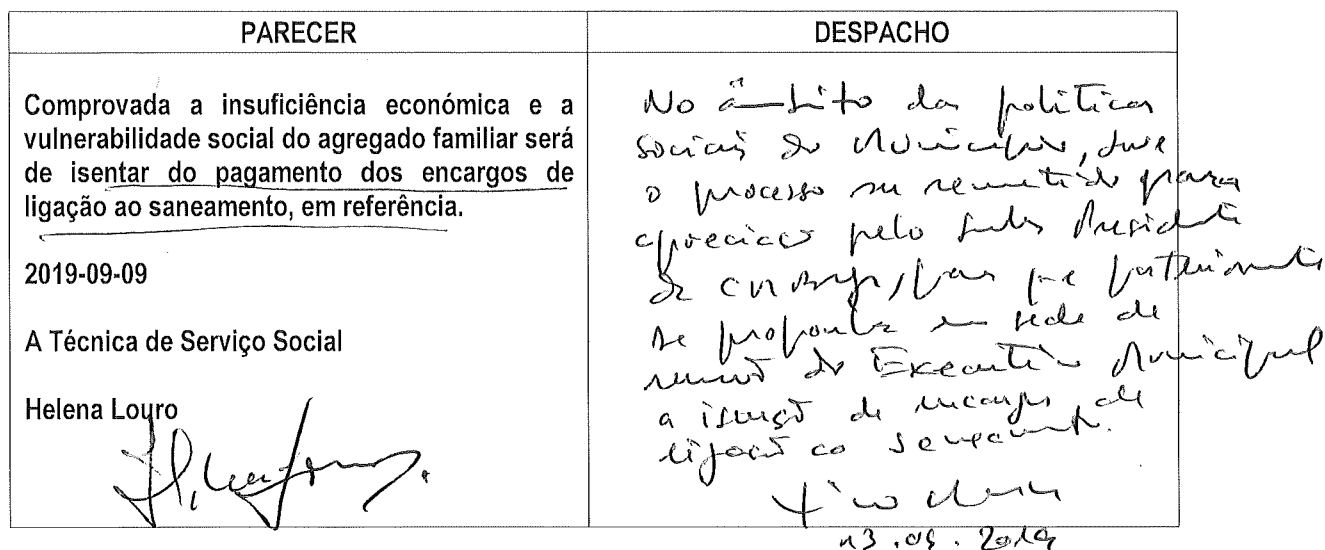 PARECER
Comprovada a insuficiência económica e a
vulnerabilidade social do agregado familiar será
de isentar do pagamento dos encargos de
ligação ao saneamento, em referência.
2019-09-09
A Técnica de Serviço Social
Helena Louro
DESPACHO
No âmbito das políticas
sociais do Município, deve
o processo ser remetido para
apreciação pelo Presidente
de para que posteriormente
se proponha em sede de
reunião do Executivo Municipal
a isenção de encargos de
ligação ao saneamento.
13.09.2019